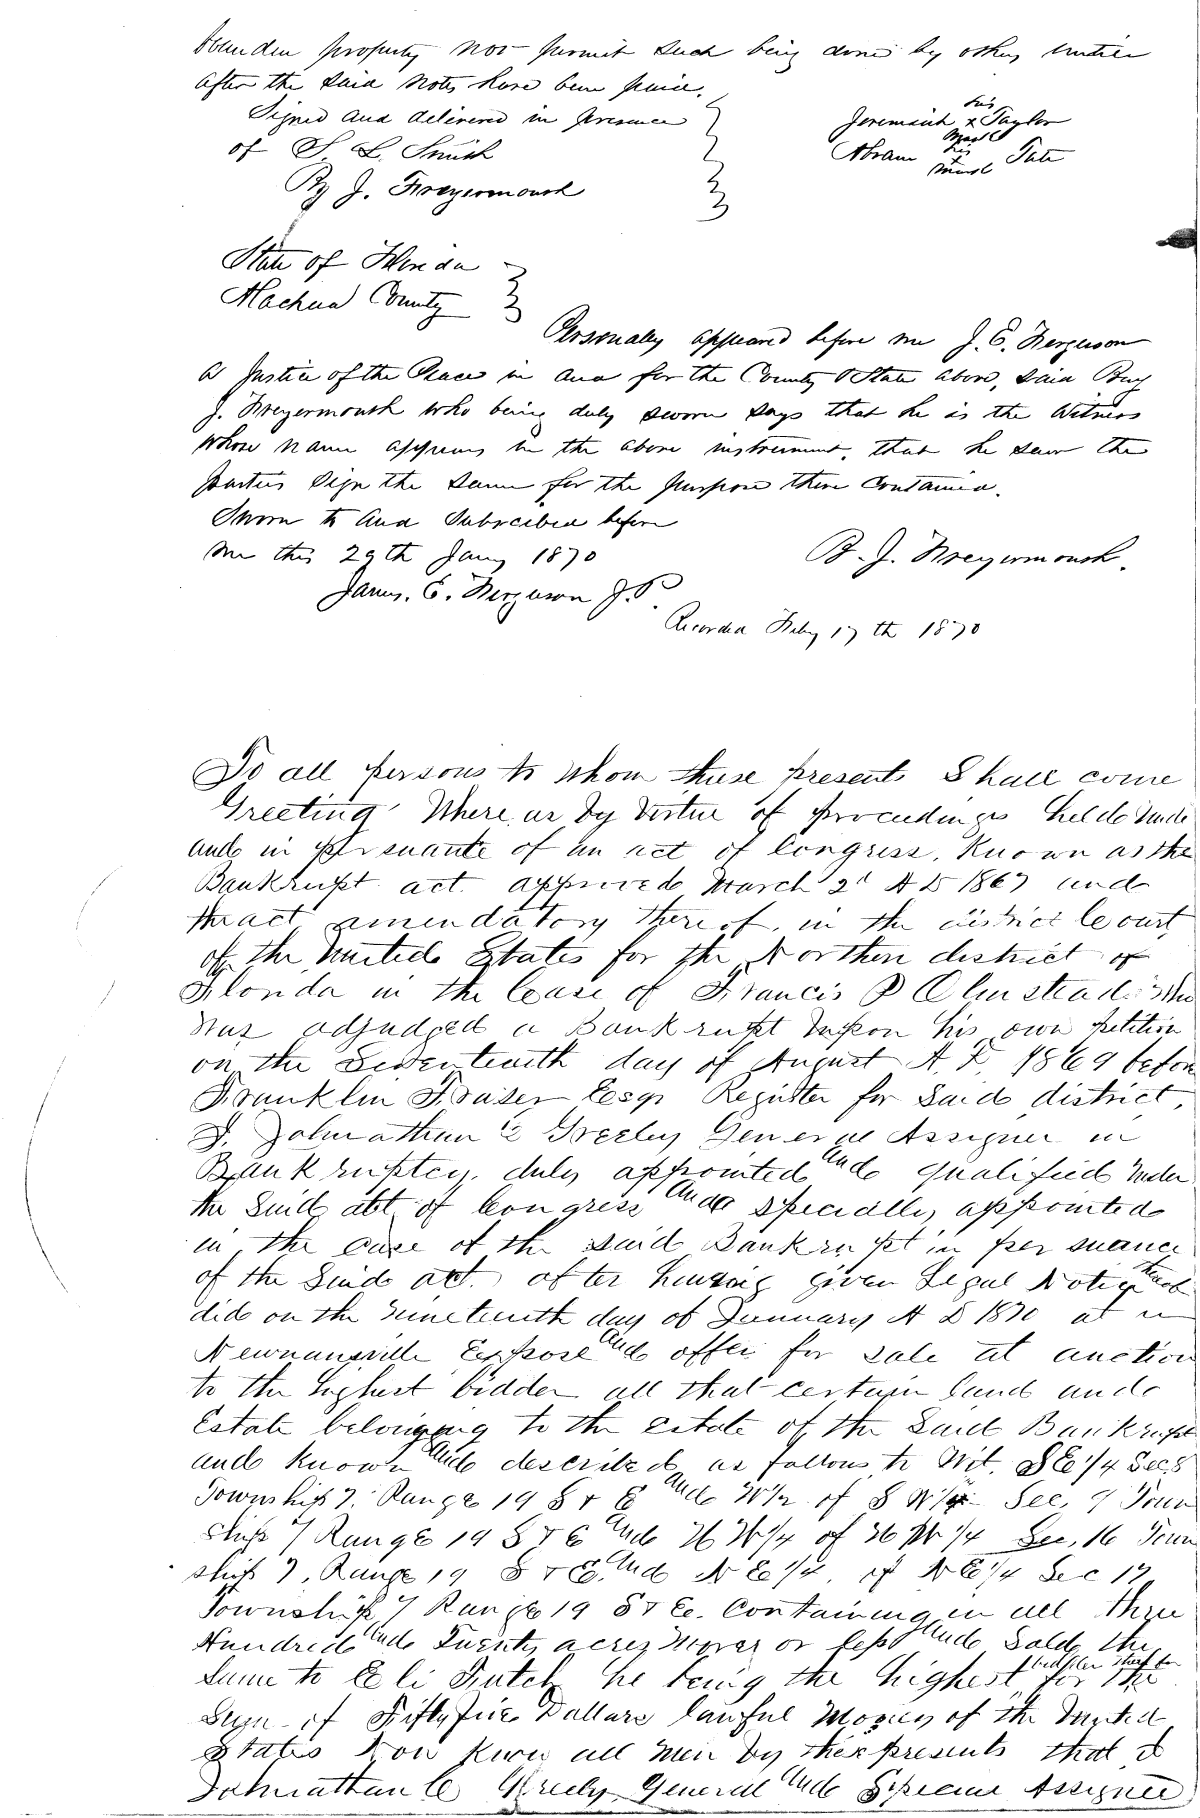 property nor permit such being done by others until
after the said notes have been paid.
Signed and delivered in presence
of S. L. Smith
By J. Freyermouth
his
Jeremiah x Taylor
mark
his
Abram x Tate
mark
State of Florida
Alachua County
Personally appeared before me J. E. Ferguson
a Justice of the Peace in and for the County & State above, said Buy
J. Freyermouth who being duly sworn says that he is the Witness
whose name appears in the above instrument, that he saw the
parties sign the same for the purpose there contained.
Sworn to and Subscribed before
me this 29th Jany 1870
B. J. Freyermouth.
James. E. Ferguson J.P.
Recorded Feby 17th 1870
To all persons to whom these presents Shall come
Greeting Where as by virtue of proceedings held unde
and in persuante of an act of Congress, Known as the
Bankrupt act approved March 2d A D 1867 and
the act amendatory thereof, in the district Court
of the United States for the Northern district of
Florida in the Case of Francis P Olmstead Who
was adjudged a Bankrupt upon his own petition
on the Seventeenth day of August A. D. 1869 before
Franklin Fraser Esqr Register for Said district,
I, Johnathan C Greeley General Assignee in
Bankruptcy, duly appointed and qualified under
the Said act of Congress and specially appointed
in the case of the said Bankrupt in persuance
of the Said act. after having given Legal Notice thereof
did on the nineteenth day of January A D 1870 at
Newnansville Expose and offer for sale at auction
to the highest bidder all that certain land and
Estate belonging to the estate of the Said Bankrupt
and known and described as follows to Wit. SE 1/4 Sec, 8
Township 7. Range 19 S & E and W 1/2 of S W 1/4 Sec, 9 Town
ship 7 Range 19 S & E and N W 1/4 of N W 1/4 Sec, 16 Town
ship 7, Range 19 S & E. and N E 1/4 of N E 1/4 Sec 17
Township 7 Range 19 S & E. Containing in all three
Hundred and Twenty acres more or less and Sold the
Same to Eli Futch he being the highest bidder therefor for the
Sum of Fifty five Dollars lawful Money of the United
States Now Know all men by these presents that I
Johnathan C Greely General and Special Assignee